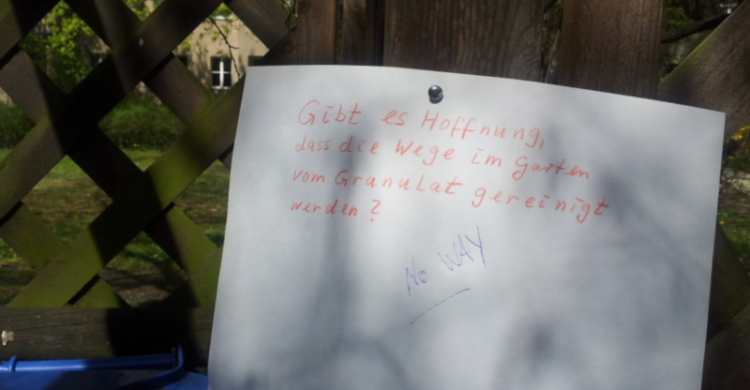 Gibt es Hoffnung,
dass die Wege im Garten
vom Granulat gereinigt
werden?
No WAY